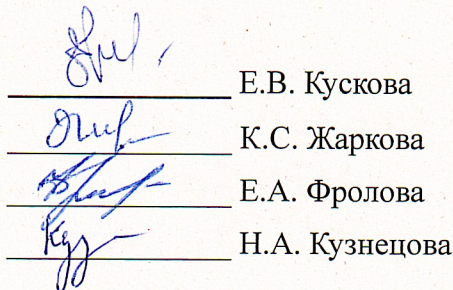 Е.В. Кускова
К.С. Жаркова
Е.А. Фролова
Н.А. Кузнецова